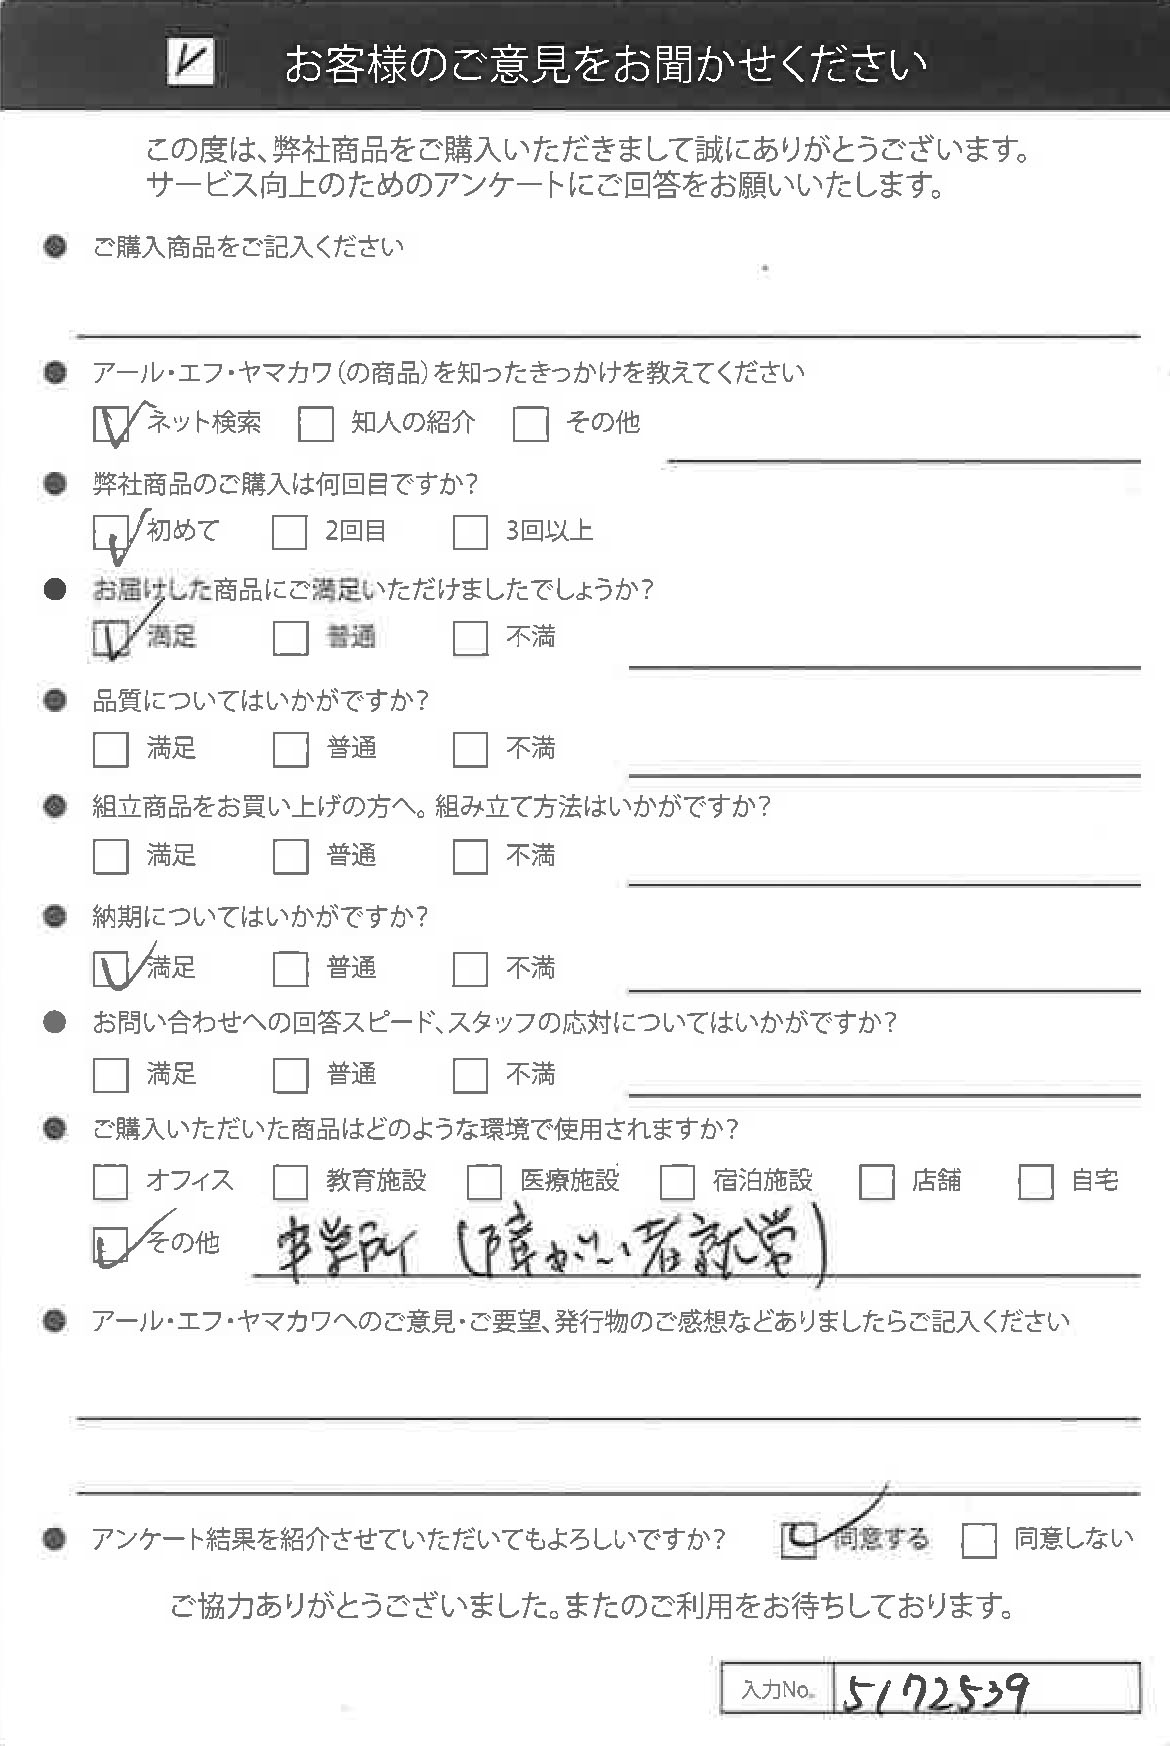 ☑ お客様のご意見をお聞かせください
この度は、弊社商品をご購入いただきまして誠にありがとうございます。
サービス向上のためのアンケートにご回答をお願いいたします。
● ご購入商品をご記入ください
● アール・エフ・ヤマカワ(の商品)を知ったきっかけを教えてください
☑ ネット検索 □ 知人の紹介 □ その他
● 弊社商品のご購入は何回目ですか?
☑ 初めて □ 2回目 □ 3回以上
● お届けした商品にご満足いただけましたでしょうか?
☑ 満足 □ 普通 □ 不満
● 品質についてはいかがですか?
□ 満足 □ 普通 □ 不満
● 組立商品をお買い上げの方へ。組み立て方法はいかがですか?
□ 満足 □ 普通 □ 不満
● 納期についてはいかがですか?
☑ 満足 □ 普通 □ 不満
● お問い合わせへの回答スピード、スタッフの応対についてはいかがですか?
□ 満足 □ 普通 □ 不満
● ご購入いただいた商品はどのような環境で使用されますか?
□ オフィス □ 教育施設 □ 医療施設 □ 宿泊施設 □ 店舗 □ 自宅
☑ その他 事業所 (障がい者就労)
● アール・エフ・ヤマカワへのご意見・ご要望、発行物のご感想などありましたらご記入ください
● アンケート結果を紹介させていただいてもよろしいですか? ☑ 同意する □ 同意しない
ご協力ありがとうございました。またのご利用をお待ちしております。
入力No. 5172539